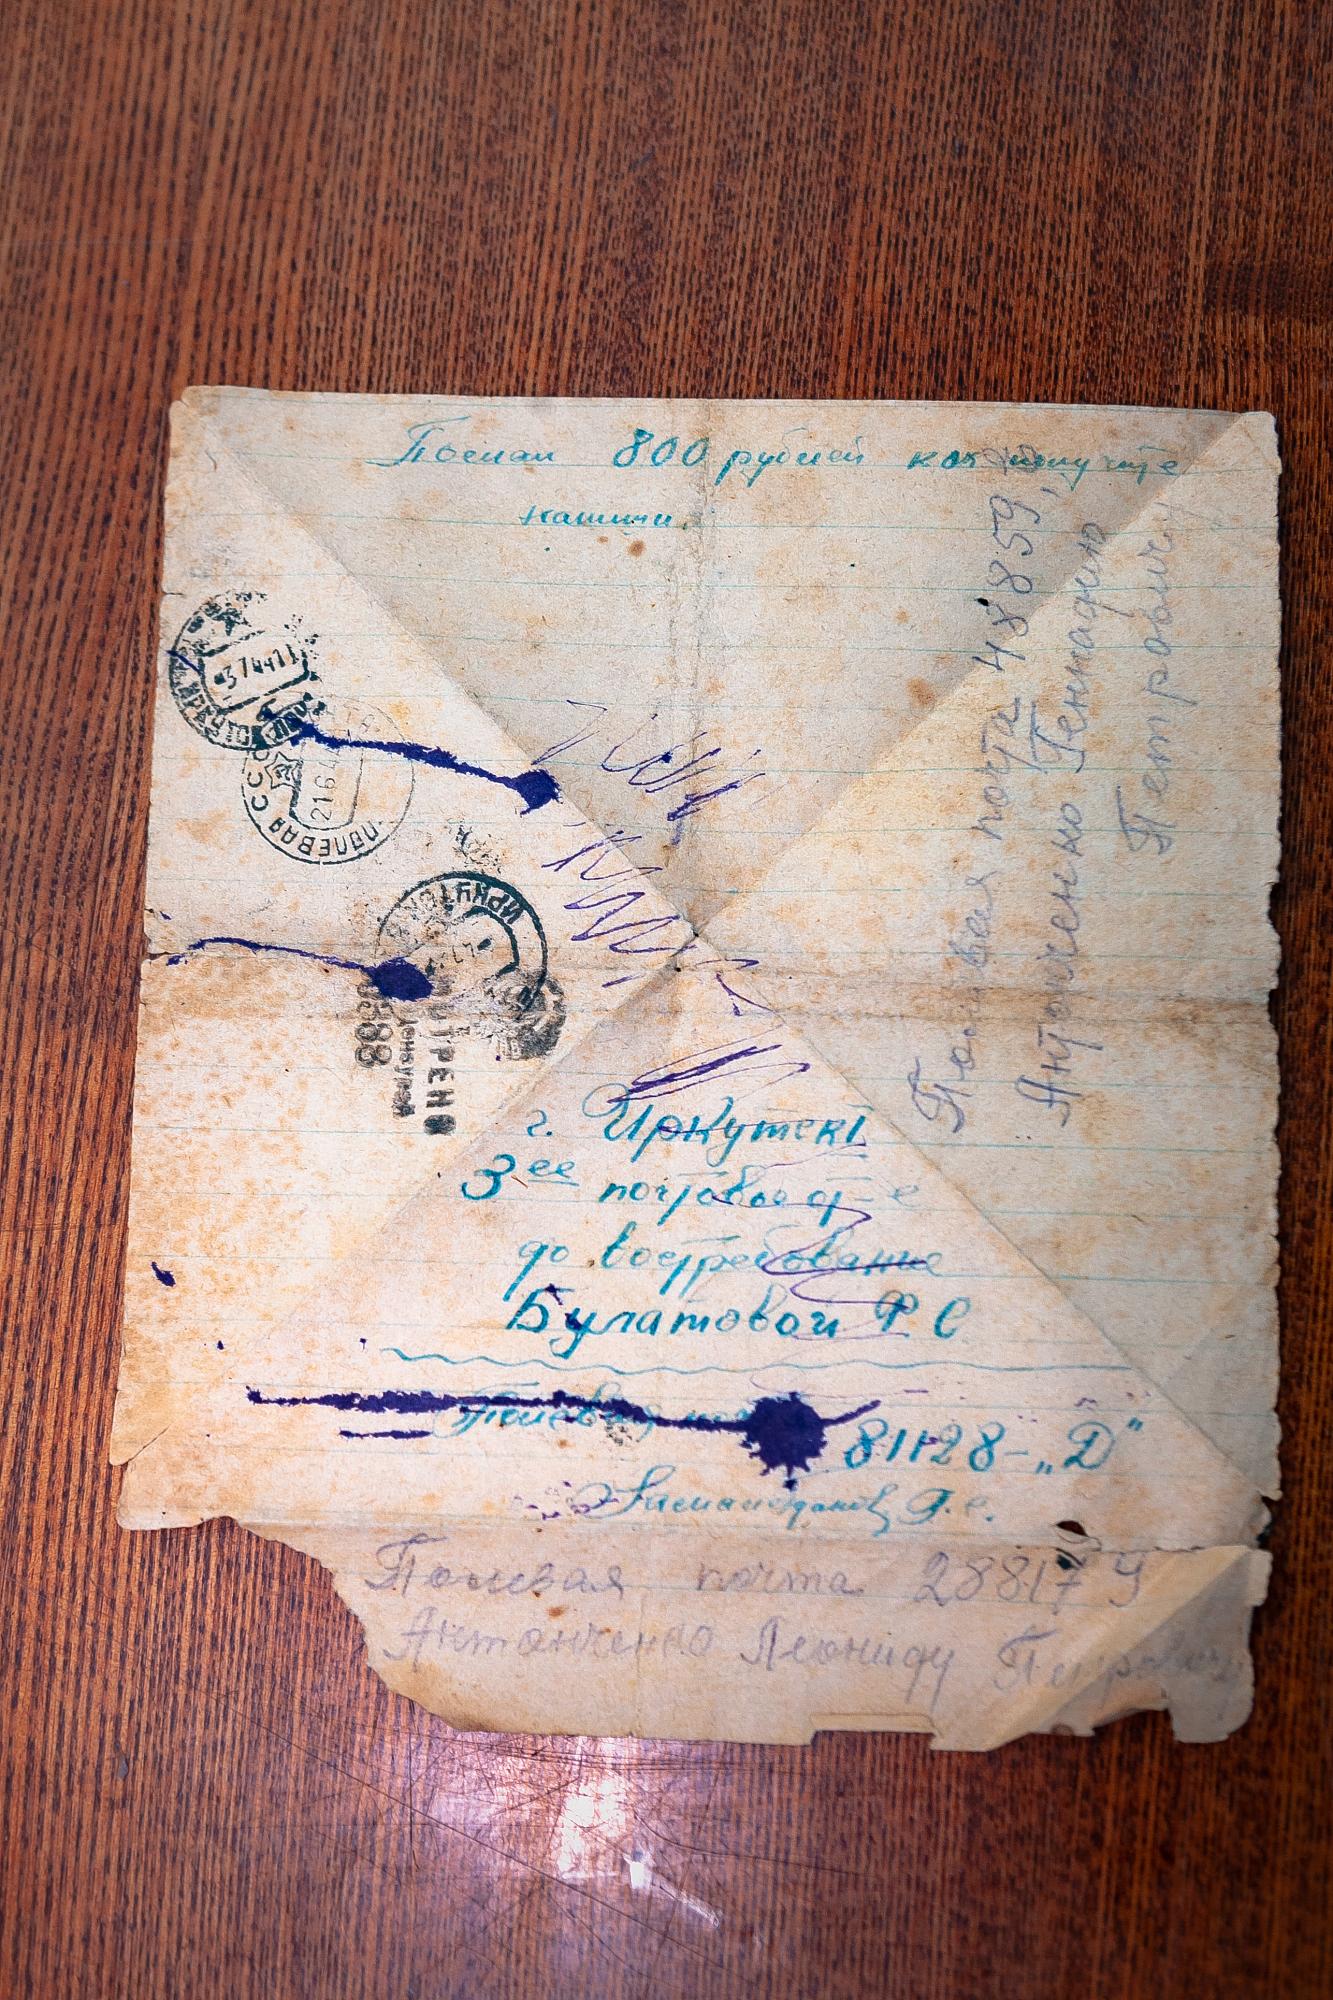 Послал 800 рублей как получите
напиши.
Полевая почта 48859,
Антонченко Геннадию
Петровичу
3 7 44 11
ИРКУТСК
ПОЛЕВАЯ СССР
21 6 4
ИРКУТСК
г. Иркутск
3ее почтовое от-е
до востребование
Булатовой Р С
Полевая 81128-„Д"
Г. С.
Полевая почта 28817 У
Антонченко Леониду Петровичу